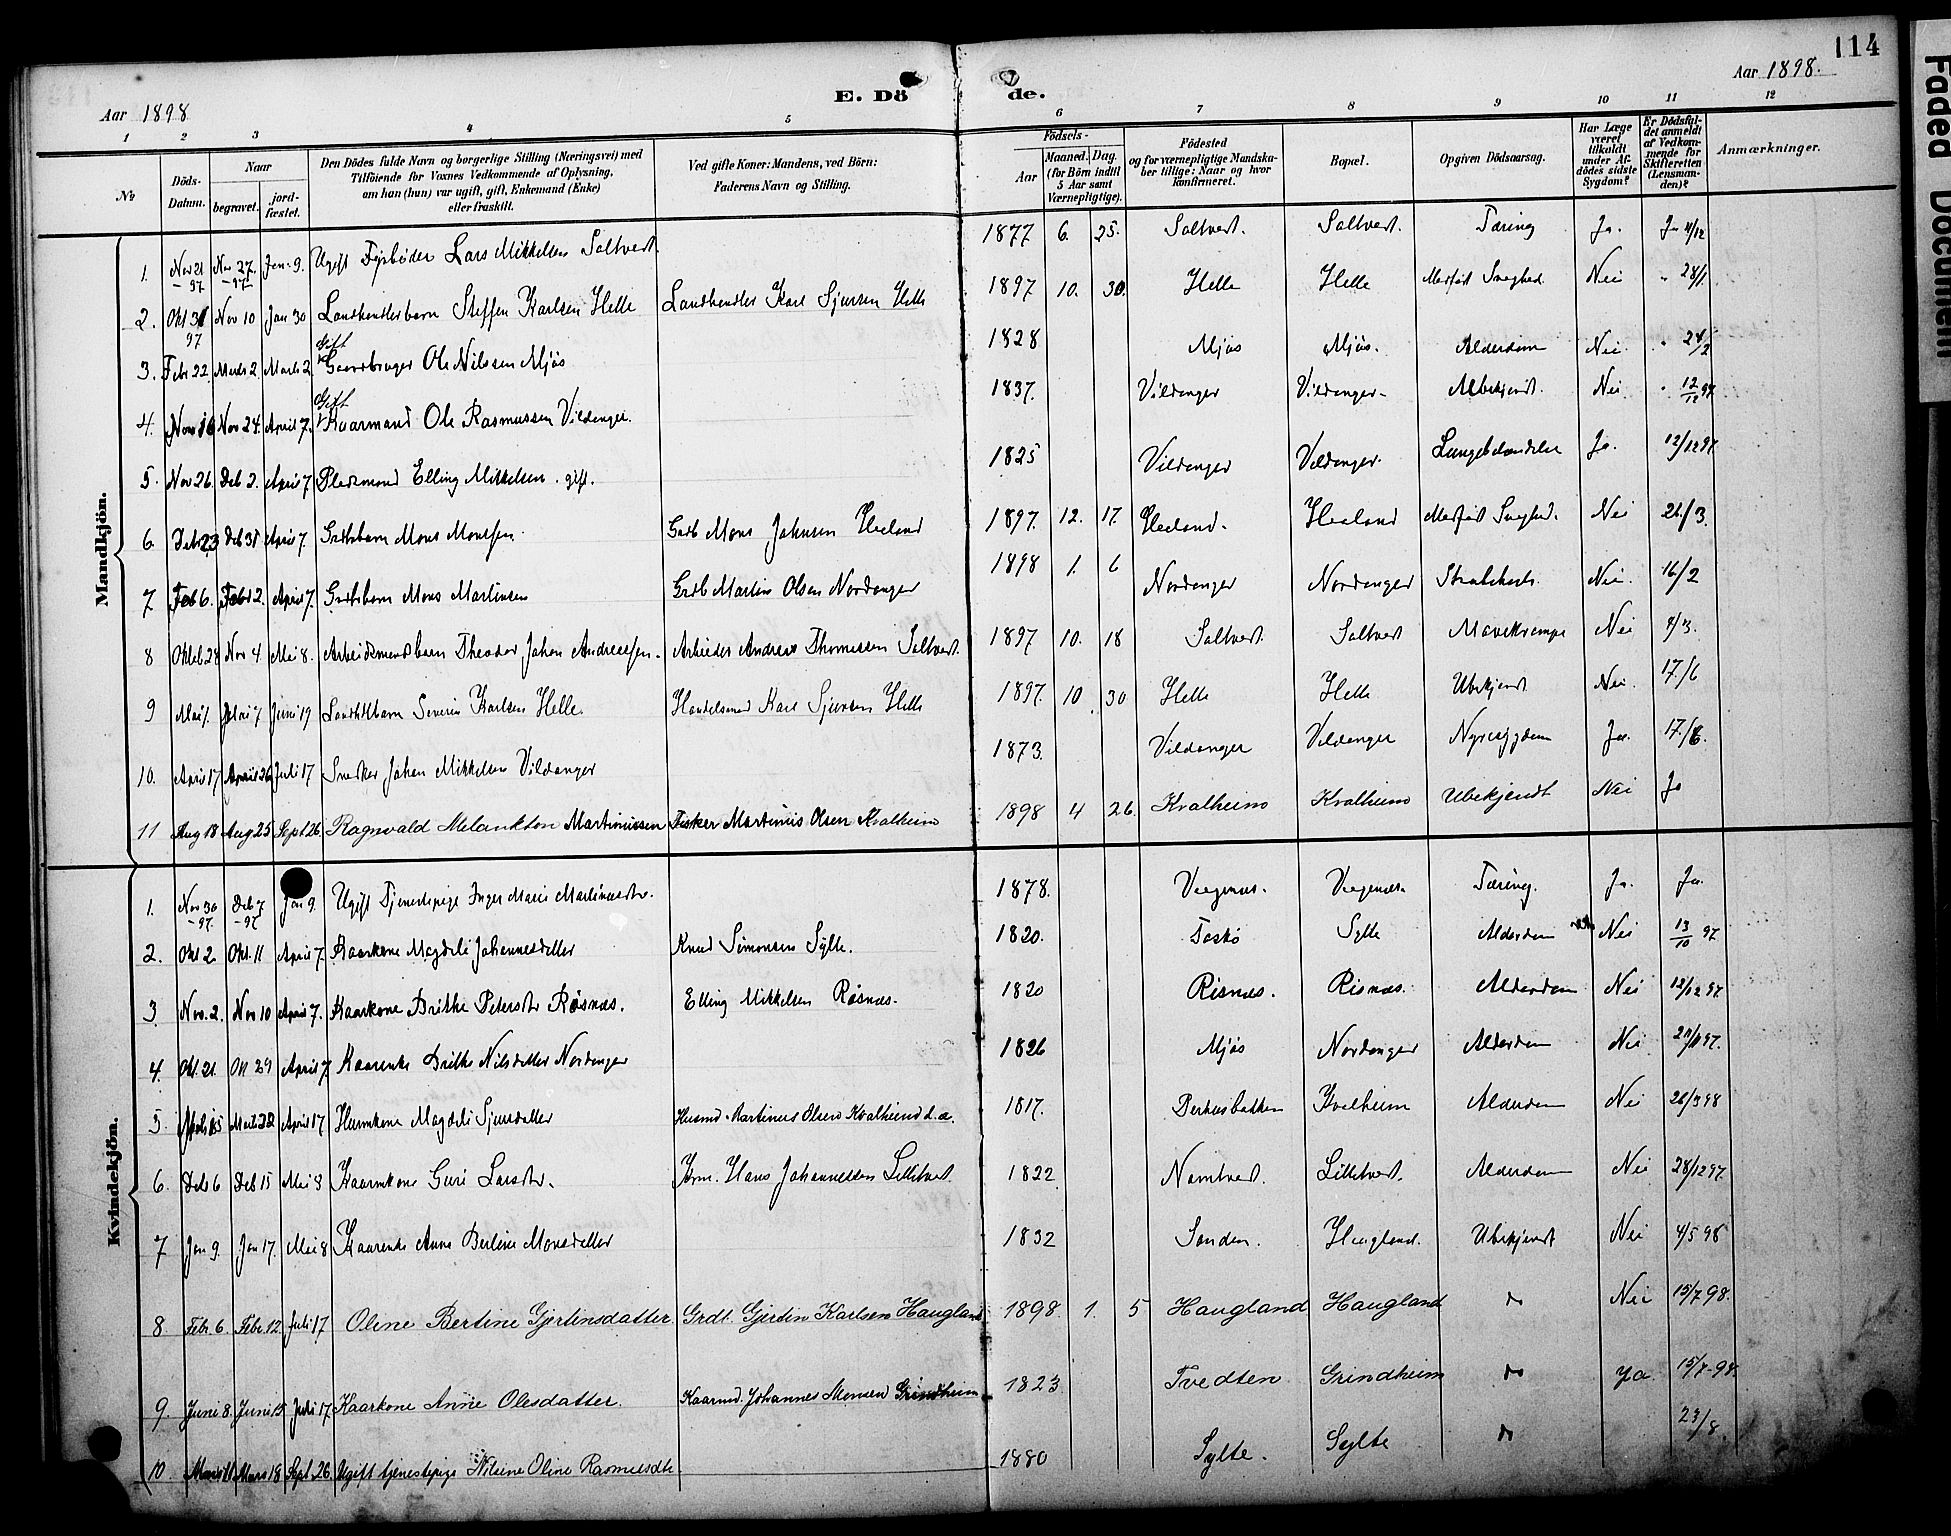 114
Aar 1898
E. Dö
de.
Aar 1898.
1 2 3 4 5 6 7 8 9 10 11 12
No
Döds-Datum.
Naar
begravet.
jord-fæstet.
Den Dödes fulde Navn og borgerlige Stilling (Næringsvei) med
Tilföiende for Voxnes Vedkommende af Oplysning,
om han (hun) var ugift, gift, Enkemand (Enke)
eller fraskilt.
Ved gifte Koner: Mandens, ved Börn:
Faderens Navn og Stilling.
Födsels-
Aar
Maaned. Dag.
(for Börn indtil
5 Aar samt
Værnepligtige).
Födested
og for værnepligtige Mandska-
ber tillige: Naar og hvor
Konfirmeret.
Bopæl.
Opgiven Dödsaarsag.
Har Læge
været
tilkaldt
under Af-
dödes sidste
Sygdom?
Er Dödsfal-
det anmeldt
af Vedkom-
mende for
Skifteretten
(Lensman-
den)?
Anmærkninger.
Mandkjön.
1. Nov 21 -97 Nov 27. -97- Jan. 9. Ugift Fyrböder Lars Mikkelsen Saltvert. 1877 6. 25. Saltvert. Saltvert. Tæring Ja. Ja 4/12
2. Okt 31 97 Nov 10 Jan 30 Landhandlerbarn Steffen Karlsen Helle Landhandler Karl Sjursen Helle 1897 10. 30. Helle Helle Medfödt Svaghed Nei " 28/1.
3. Febr 22. Marts 2. Marts 2 Gift Gaardbruger Ole Nilssen Mjös 1828 Mjös Mjös. Alderdom Nei. " 24/2
4. Nov 16 Nov 24. April 7. Gift Kaarmand Ole Rasmussen Vildanger. 1837. Vildanger Vildanger. Nei. " 12/12 97
5. Nov 26. Deb 2. April 7 Pladsmand Elling Mikkelsen. gift. 1825 Vildanger Vildanger. Lungebetændelse Ja. 12/12 97
6. Debr 23 Deb 31 April 7. Grdbsbarn Mons Monssen Grdb Mons Johnsen Hæland 1897. 12. 17. Hæland. Hæland Medfödt Svaghed. Nei 26/3.
7. Feb 6. Febr 12. April 7. Grdbsbarn Mons Martinsen Grdb Martin Olsen Nordanger 1898 1. 6 Nordanger Nordanger Nei. 16/2
8 Oktob 28 Nov 4. Mai 8. Arbeidsmandsbarn Theodor Johan Andreassen. Arbeider Andreas Thomassen Saltvert. 1897 10. 18 Saltvert. Saltvert Mavekrampe Nei 8/3.
9 Mai 1. Mai 7 Juni 19 Landhdlbarn Severin Karlsen Helle. Handelsmd Karl Sjursen Helle 1897. 10 30 Helle Helle Ubekjendt Nei. 17/6
10. April 17 April 26 Juli 17 Snedker Johan Mikkelsen Vildanger 1873. Vildanger Vildanger Nyresygdom Ja. 17/6.
11 Aug 18 Aug 25 Sept 26. Ragnvald Melankton Martinussen Fisker Martinus Olsen Kvalheim 1898 4 26. Kvalheim Kvalheim Ubekjendt Nei Ja
Kvindekjön.
1. Nov 30 -97. Deb 7 -97 Jan 9. Ugift Tjenestepige Inger Marie Martinusdtr. 1878. Vaagenæs. Vaagenæs. Tæring. Ja. Ja.
2. Okt 2 Okt. 11 April 7. Kaarkone Magdeli Johannesdatter Knud Simonsen Sylte. 1820. Toskö Sylte Alderdom Nei 13/10 97
3 Nov. 2. Nov 10 April 7. Kaarkone Brithe Petersdtr Risnæs. Elling Mikkelsen Risnæs. 1820 Risnæs. Risnæs. Alderdom Nei 12/12 97.
4. Okt. 21. Okt 29 April 7 Kaarenke Brithe Nilsdatter Nordanger 1826 Mjös Nordanger Alderdom Nei 97.
5. Marts 15 Marts 22 April 17 Husmkone Magdeli Sjursdatter Husmd. Martinus Olsen Kvalheim d. æ. 1817. Kvalheim Alderdom Nei 26/3 98
6. Deb 6 Deb 15 Mai 8 Kaarmkone Guri Larsdtr. Krm. Hans Johannessen Lilletvet 1822 Namtvedt. Lilletvet. Alderdom Nei 28/12 97.
7 Jan 9. Jan 17. Mai 8 Kaarenke Anne Berline Monsdatter 1832 Sanden. Haugland. Ubekjendt Nei 4/5 98
8 Febr. 6. Febr. 12 Juli 17 Oline Bertine Gjertinsdatter Grdt. Gjertin Karlsen Haugland 1898. 1. 5 Haugland Haugland do Nei 15/7 98.
9. Juni 8. Juni 15 Juli 17 Kaarkone Anne Olesdatter. Kaarmd. Johannes Monsen Grindheim 1823 Tvedten Grindheim do ya 15/7-98.
10 Marts 11 Mars 18 Sept 26 Ugift tjenestepige Nilsine Oline Rasmusdtr. 1880 Sylte. Sylte do 23/8.
Faded Document